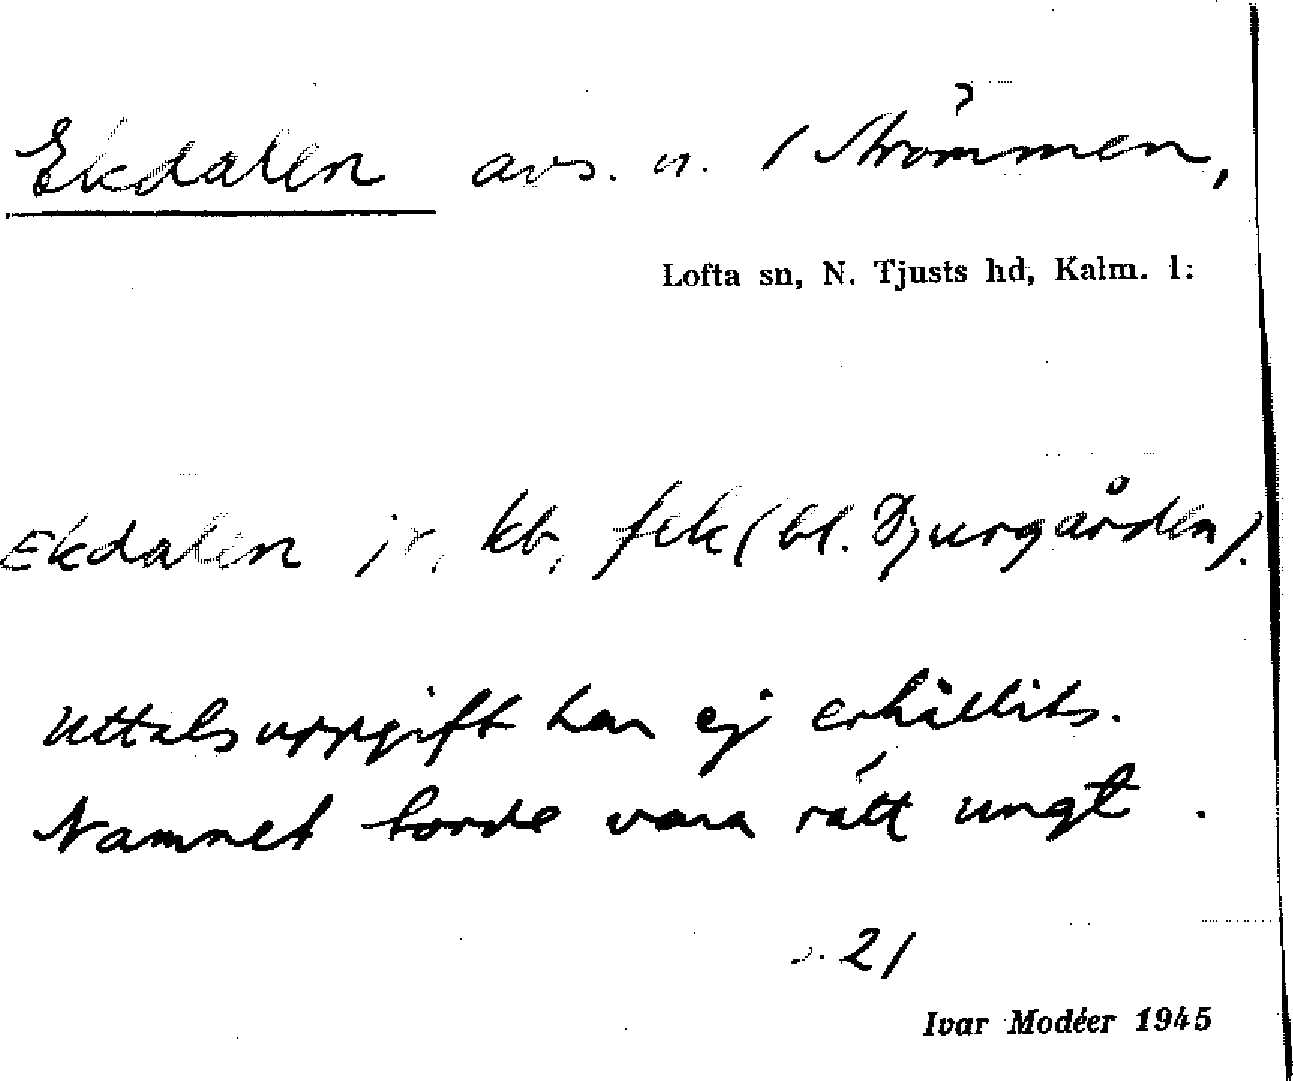 Ekdalen avs. n. 1 Strömmen,
Lofta sn, N. Tjusts hd, Kalm. l:
Ekdalen jr, kb, fek (bl. Djurgården).
Uttalsuppgift har ej erhållits.
Namnet torde vara rätt ungt.
s. 21
Ivar Modéer 1945